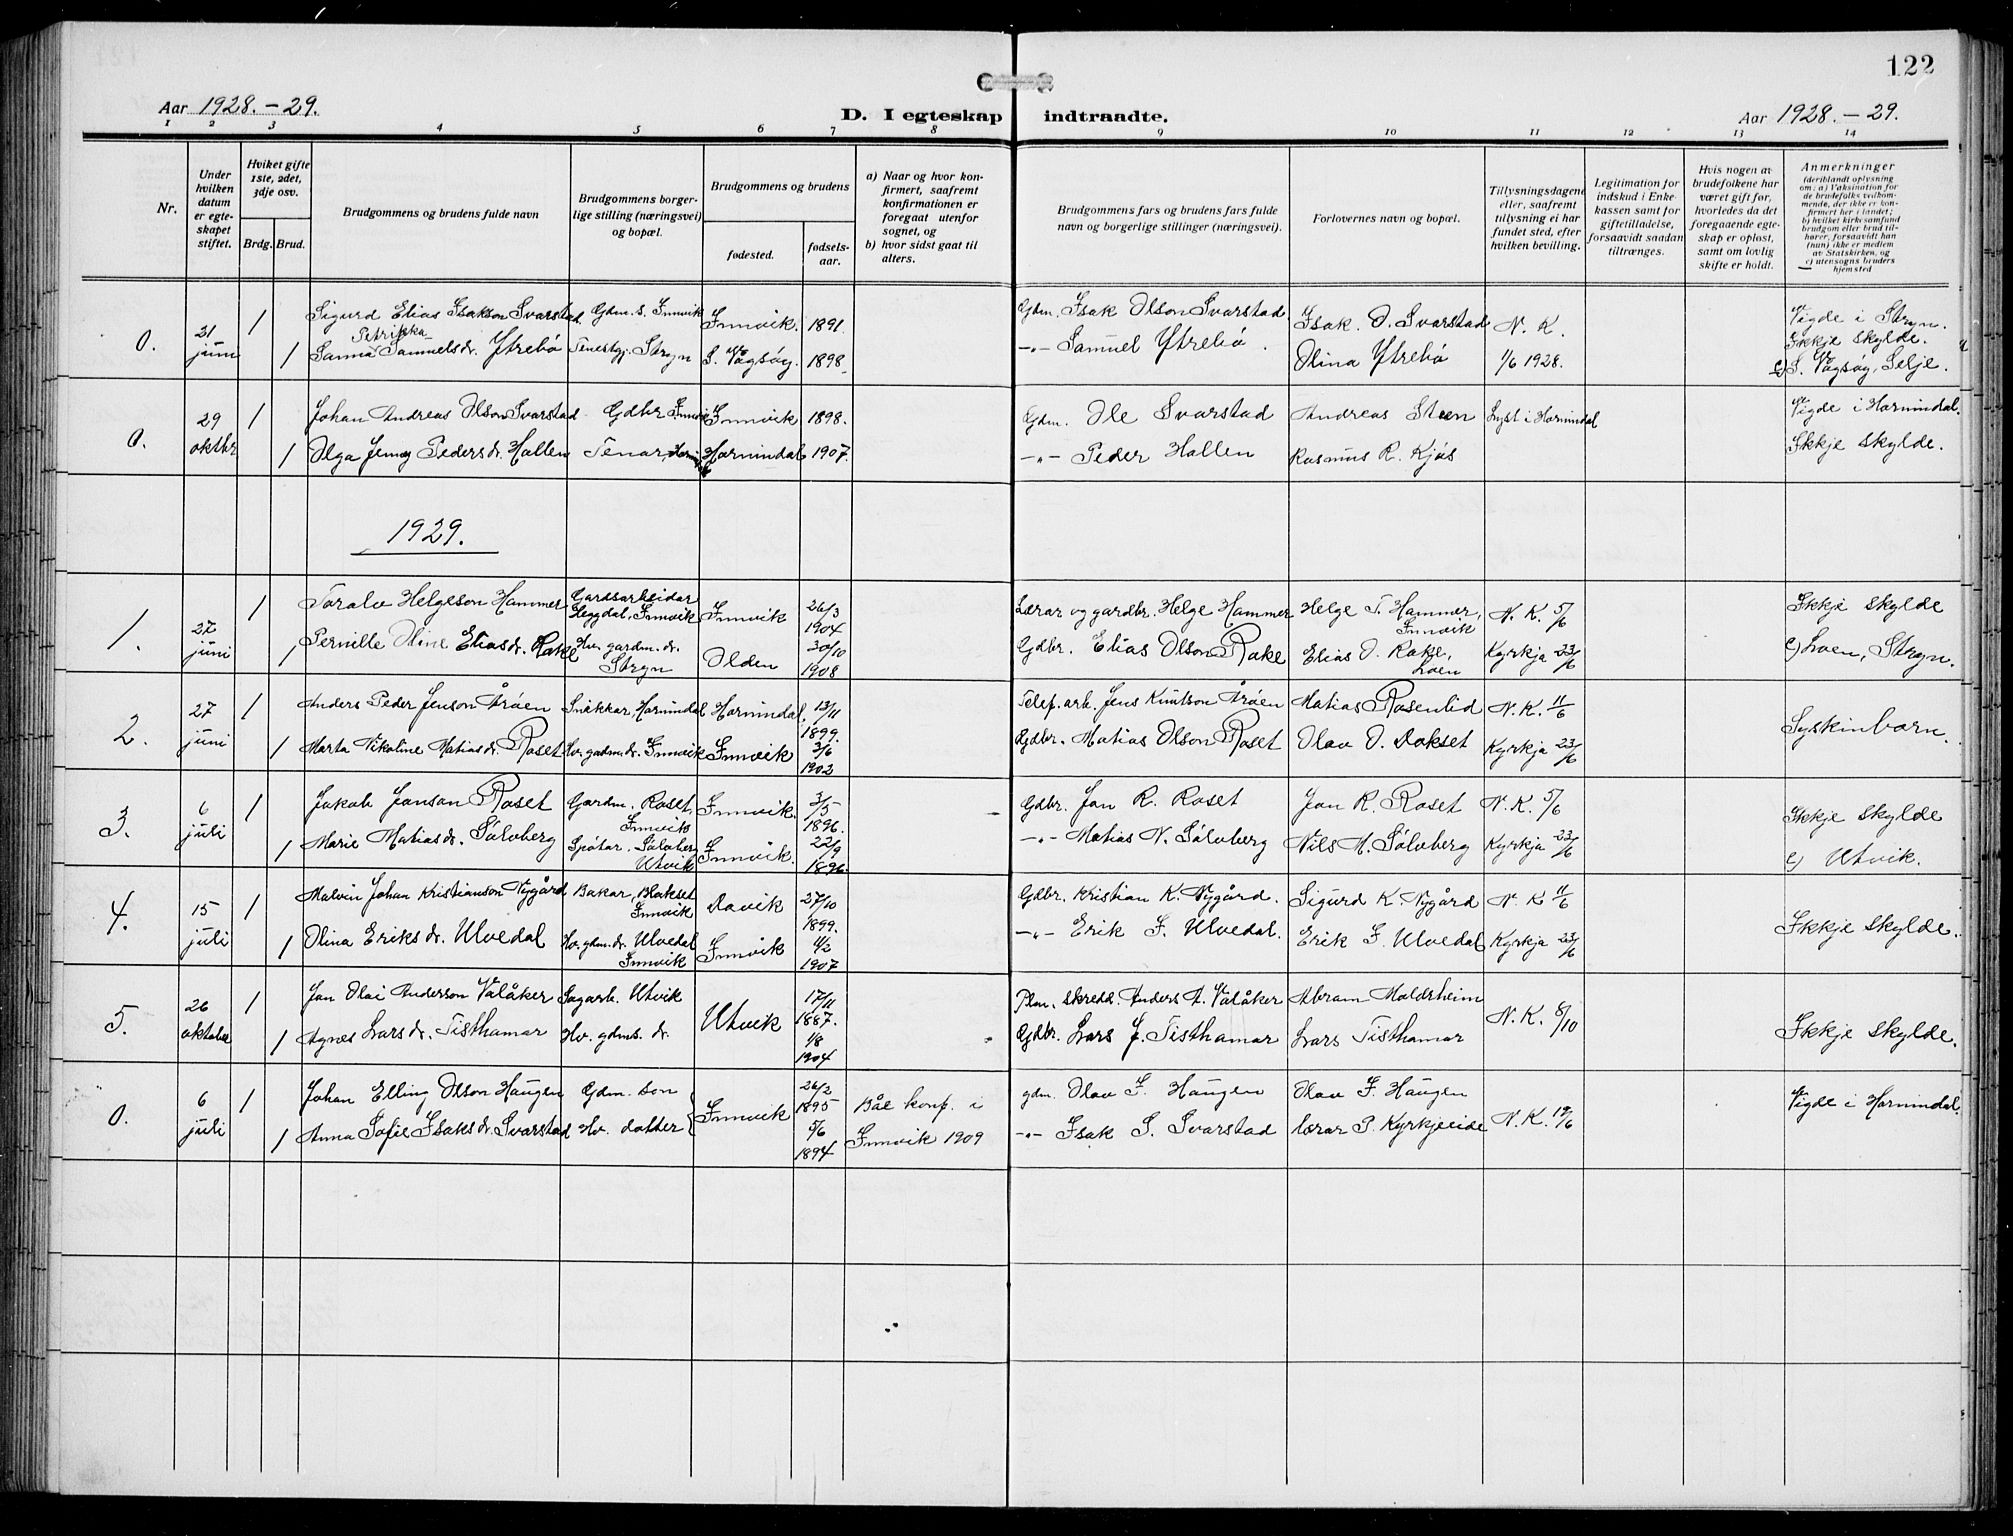 122
Aar 1928.-29.
D. I egteskap indtraadte.
Aar 1928.-29.
1 2 3 4 5 6 7 8 9 10 11 12 13 14
Nr.
Under hvilken datum er egteskapet stiftet.
Hviket gifte 1ste, 2det, 3dje osv.
Brdg. Brud.
Brudgommens og brudens fulde navn
Brudgommens borgerlige stilling (næringsvei) og bopæl.
Brudgommens og brudens
fødested.
fødselsaar.
a) Naar og hvor konfirmert, saafremt konfirmationen er foregaat utenfor sognet, og
b) hvor sidst gaat til alters.
Brudgommens fars og brudens fars fulde navn og borgerlige stillinger (næringsvei).
Forlovernes navn og bopæl.
Tillysningsdagene eller, saafremt tillysning ei har fundet sted, efter hvilken bevilling.
Legitimation for indskud i Enkekassen samt for giftetilladelse, forsaavidt saadan tiltrænges.
Hvis nogen av brudefolkene har været gift før, hvorledes da det foregaaende egteskap er opløst, samt om lovlig skifte er holdt.
Anmerkninger
(deriblandt oplysning om: a) Vaksination for de brudefolks vedkommende, der ikke er konfirmert her i landet; b) hvilket kirkesamfund brudgom eller brud tilhører, forsaavidt han (hun) ikke er medlem av Statskirken, og c) utensogns bruders hjemsted
0. 21 juni 1 Sigurd Elias Isakson Svarstad. Gdm. s. Innvik Innvik. 1891. Gdm. Isak Olson Svarstad. Isak. O. Svarstad N. K. Vigde i Stryn.
Petrikka
1 Sanna Samuelsdr. Ytrebö Tenestgj. Stryn S. Vågsöy. 1898. -"- Samuel Ytrebö. Olina Ytrebö 1/6 1928. Ikkje skylde.
c) S. Vågsöy, Selje.
0. 29 oktbr 1 Johan Andreas Olson Svarstad Gdbr Innvik Innvik 1898. Gdm. Ole Svarstad Andreas Steen Lyst i Hornindal Vigde i Hornindal.
1 Olga Jenny Pedersdr. Hallen Tenar, Horn Hornindal 1907. -"- Peder Hallen Rasmus R. Kjös Ikkje skylde.
1929.
1. 27 juni 1 Toralv Helgeson Hammer Gardsarbeidar Heggdal, Innvik Innvik 26/3 1904 Lærar og gardbr. Helge Hammer Helge T. Hammer, Innvik N. K. 5/6 Ikkje skylde
1 Pernille Oline Eliasdr. Rake Hv. gardm. dr. Stryn Olden 30/10 1908 Gdbr. Elias Olson Rake Elias O. Rake, Loen Kyrkja 23/6 c) Loen, Stryn.
2. 27 juni 1 Anders Peder Jenson Åröen Snikkar, Hornindal Hornindal. 13/11 1899. Telef. arb. Jens Knutson Åröen Matias Rosenlid N. K. 11/6 Syskinborn.
1 Marta Nikoline Matiasdr. Roset Hv. gadm. dr. Innvik Innvik 3/6 1902 Gdbr. Matias Olson Roset Olav O. Dokset Kyrkja 23/6
3. 6 juli 1 Jakob Jonson Roset Gardm. Roset, Innvik Innvik. 3/5 1896. Gdbr. Jon R. Roset Jon R. Roset N. K. 5/6 Ikkje skylde
1 Marie Matiasdr. Sölvberg Spötar. Sölvberg Utvik Innvik. 22/9 1896. -"- Matias N. Sölvberg Nils M. Sölvberg Kyrkja 23/6 c) Utvik.
4. 15 juli 1 Malvin Johan Kristianson Nygård Bakar, Blakset Innvik Davik 27/10 1899. Gdbr. Kristian K. Nygård. Sigurd K. Nygård N. K 11/6 Ikkje skylde.
1 Olina Eriksdr. Ulvedal Hv. gdm. dr. Ulvedal Innvik Innvik 4/2 1907 -"- Erik F. Ulvedal. Erik F. Ulvedal Kyrkja 23/6
5. 26 oktober 1 Jon Olai Anderson Valåker Sagarb. Utvik Utvik 17/11 1887. Plm. skredd. Anders A. Valåker Abram Maldrheim N. K. 8/10 Ikkje skylde.
1 Agnes Larsdr. Tisthamar Hv. gdms. dr. 1/8 1904 Gdbr. Lars J. Tisthamar Lars Tisthamar
0. 6 juli 1 Johan Elling Olson Haugen Gdm. son Innvik 26/2 1895 Båe konf. i Innvik 1909 gdm. Olav I. Haugen Olav I. Haugen N. K. 19/6 Vigde i Hornindal.
1 Anna Sofie Isaksdr. Svarstad Hv. dotter 5/6 1894 -"- Isak S. Svarstad lærar P. Kyrkjeeide